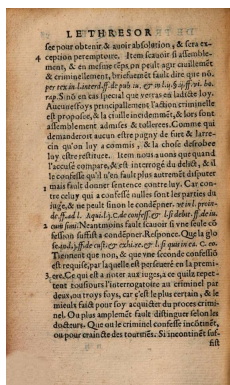 LE THRESOR
ser pour obtenir & auoir absolution, & sera ex-
4 ception peremptoire. Item scauoir si assemble-
ment, & en mesme tẽps on peult agir ciuillemẽt
& criminellement, briefuemẽt fault dire que nõ.
per tex in l. interd. ff. de pub. iu. &
rap. Sinõ en cas special que verras en ladicte loy.
Aucunesfoys principallement l'action criminelle
est proposée, & la ciuille incidemmẽt, & lors sont
assemblement admises & tollerees. Comme qui
demanderoit aucun estre pugny de furt & larre-
cin qu'on luy a commis, & la chose desrobee
luy estre restituee. Item nous auons que quand
l'accusé compare, & est interrogé du delict, & il
le confesse qu'il n'en fault plus autremẽt disputer
mais fault donner sentence contre luy. Car con-
tre celuy qui a confessé nulles sont les parties du
iuge, & ne peult sinon le condẽpner.
de. ff. ad l. Aquil. l. j. C. de confess. &
cum simi. Neantmoins fault scauoir si vne seule cõ
fession suffist a condẽpner. Responce. Que la glo
se
Tiennent que non, & que vne seconde confessiõ
est requise, par laquelle est perseueré en la premi-
3 ere. Ce qui est a noter aux iuges, a ce quilz repe-
tent tousiours l'interrogatoire au criminel par
deux, ou troys foys, car ç'est le plus certain, & le
mieulx faict pour soy acquicter du proces crimi-
nel. Ou plus amplemẽt fault distinguer selon les
docteurs. Que ou le criminel confesse incõtinẽt,
ou pour craincte des tourmẽs. Si incontinẽt suf-
fist